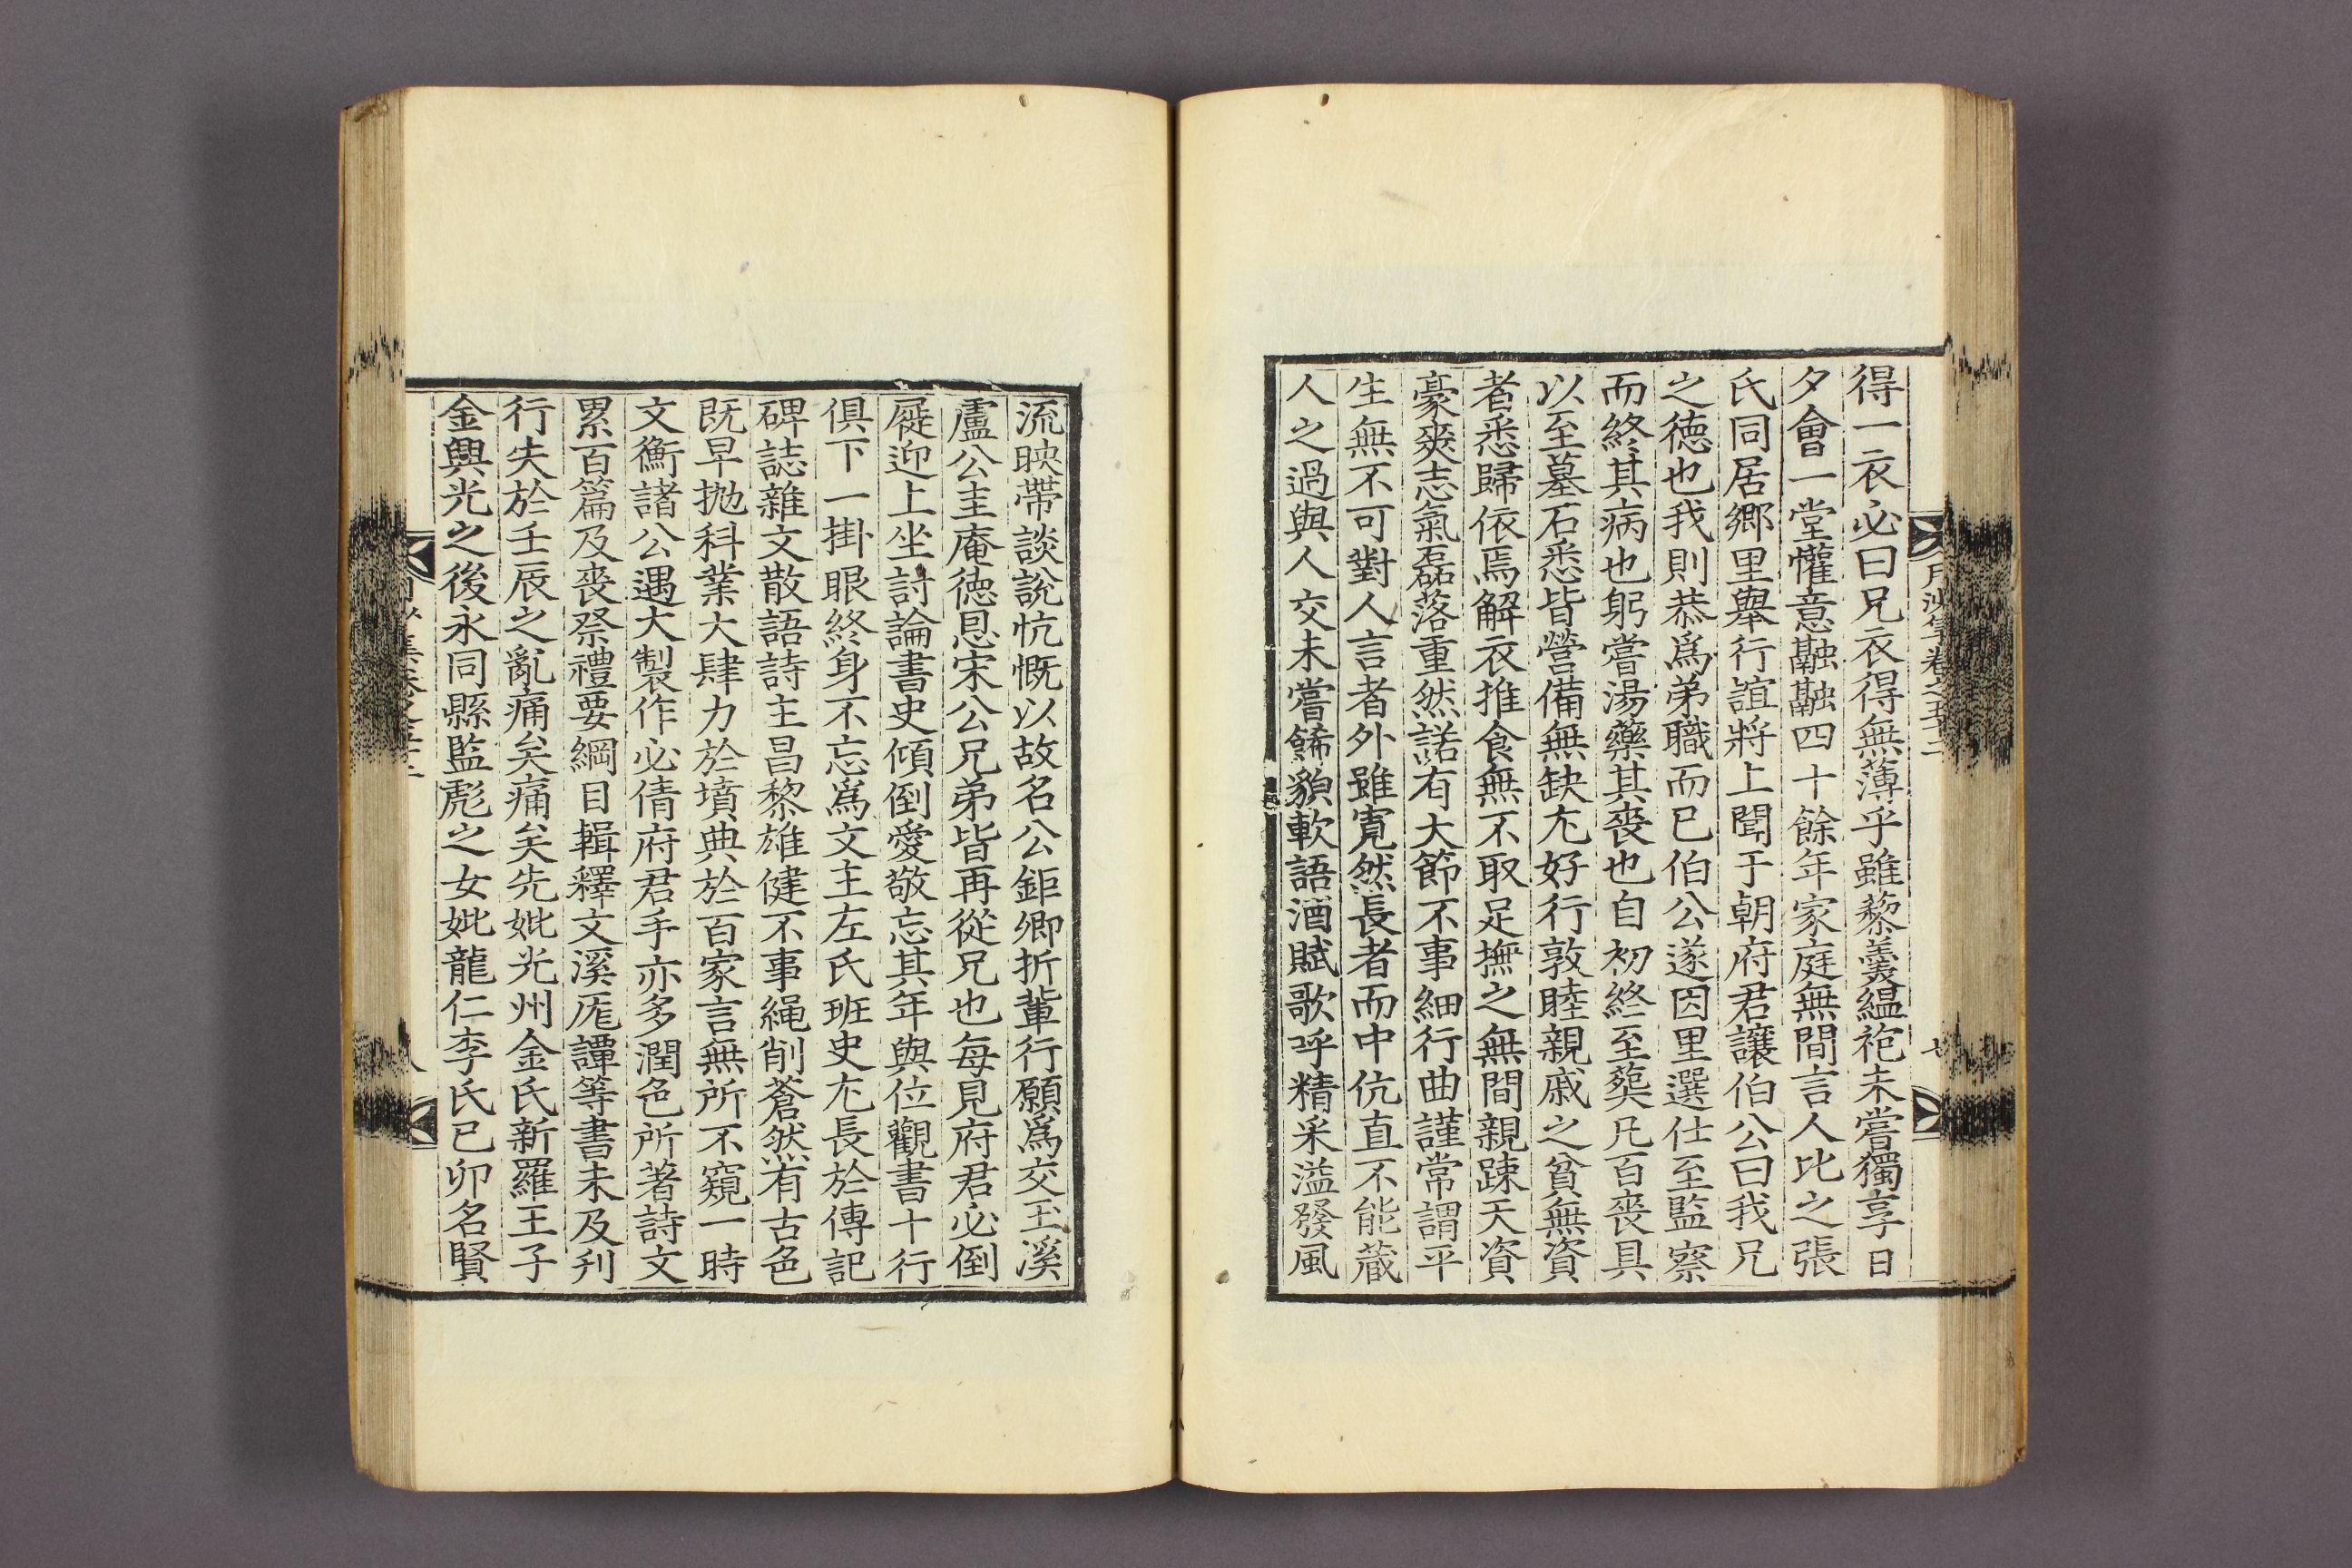 得一衣必曰兄衣得無薄乎雖藜羹縕袍未嘗獨享日
夕會一堂懽意融融四十餘年家庭無間言人比之張
氏同居鄕里擧行誼將上聞于朝府君讓伯公曰我兄
之德也我則恭爲弟職而已伯公遂因里選仕至監察
而終其病也躬嘗湯藥其喪也自初終至葬凡百喪具
以至墓石悉皆營備無缺尤好行敦睦親戚之貧無資
者悉歸依焉解衣推食無不取足撫之無間親踈天資
豪爽志氣磊落重然諾有大節不事細行曲謹常謂平
生無不可對人言者外雖寬然長者而中伉直不能藏
人之過與人交未嘗餙貌軟語酒賦歌呼精采溢發風
流映帶談說忼慨以故名公鉅卿折輩行願爲交玉溪
盧公圭庵德恩宋公兄弟皆再從兄也每見府君必倒
屣迎上坐討論書史傾倒愛敬忘其年與位觀書十行
俱下一掛眼終身不忘爲文主左氏班史尤長於傳記
碑誌雜文散語詩主昌黎雄健不事繩削蒼然有古色
旣早抛科業大肆力於墳典於百家言無所不窺一時
文衡諸公遇大製作必倩府君手亦多潤色所著詩文
累百篇及喪祭禮要綱目輯釋文溪厖譚等書未及刊
行失於壬辰之亂痛矣痛矣先妣光州金氏新羅王子
金興光之後永同縣監彪之女妣龍仁李氏己卯名賢
月沙集卷之五十二
七
八